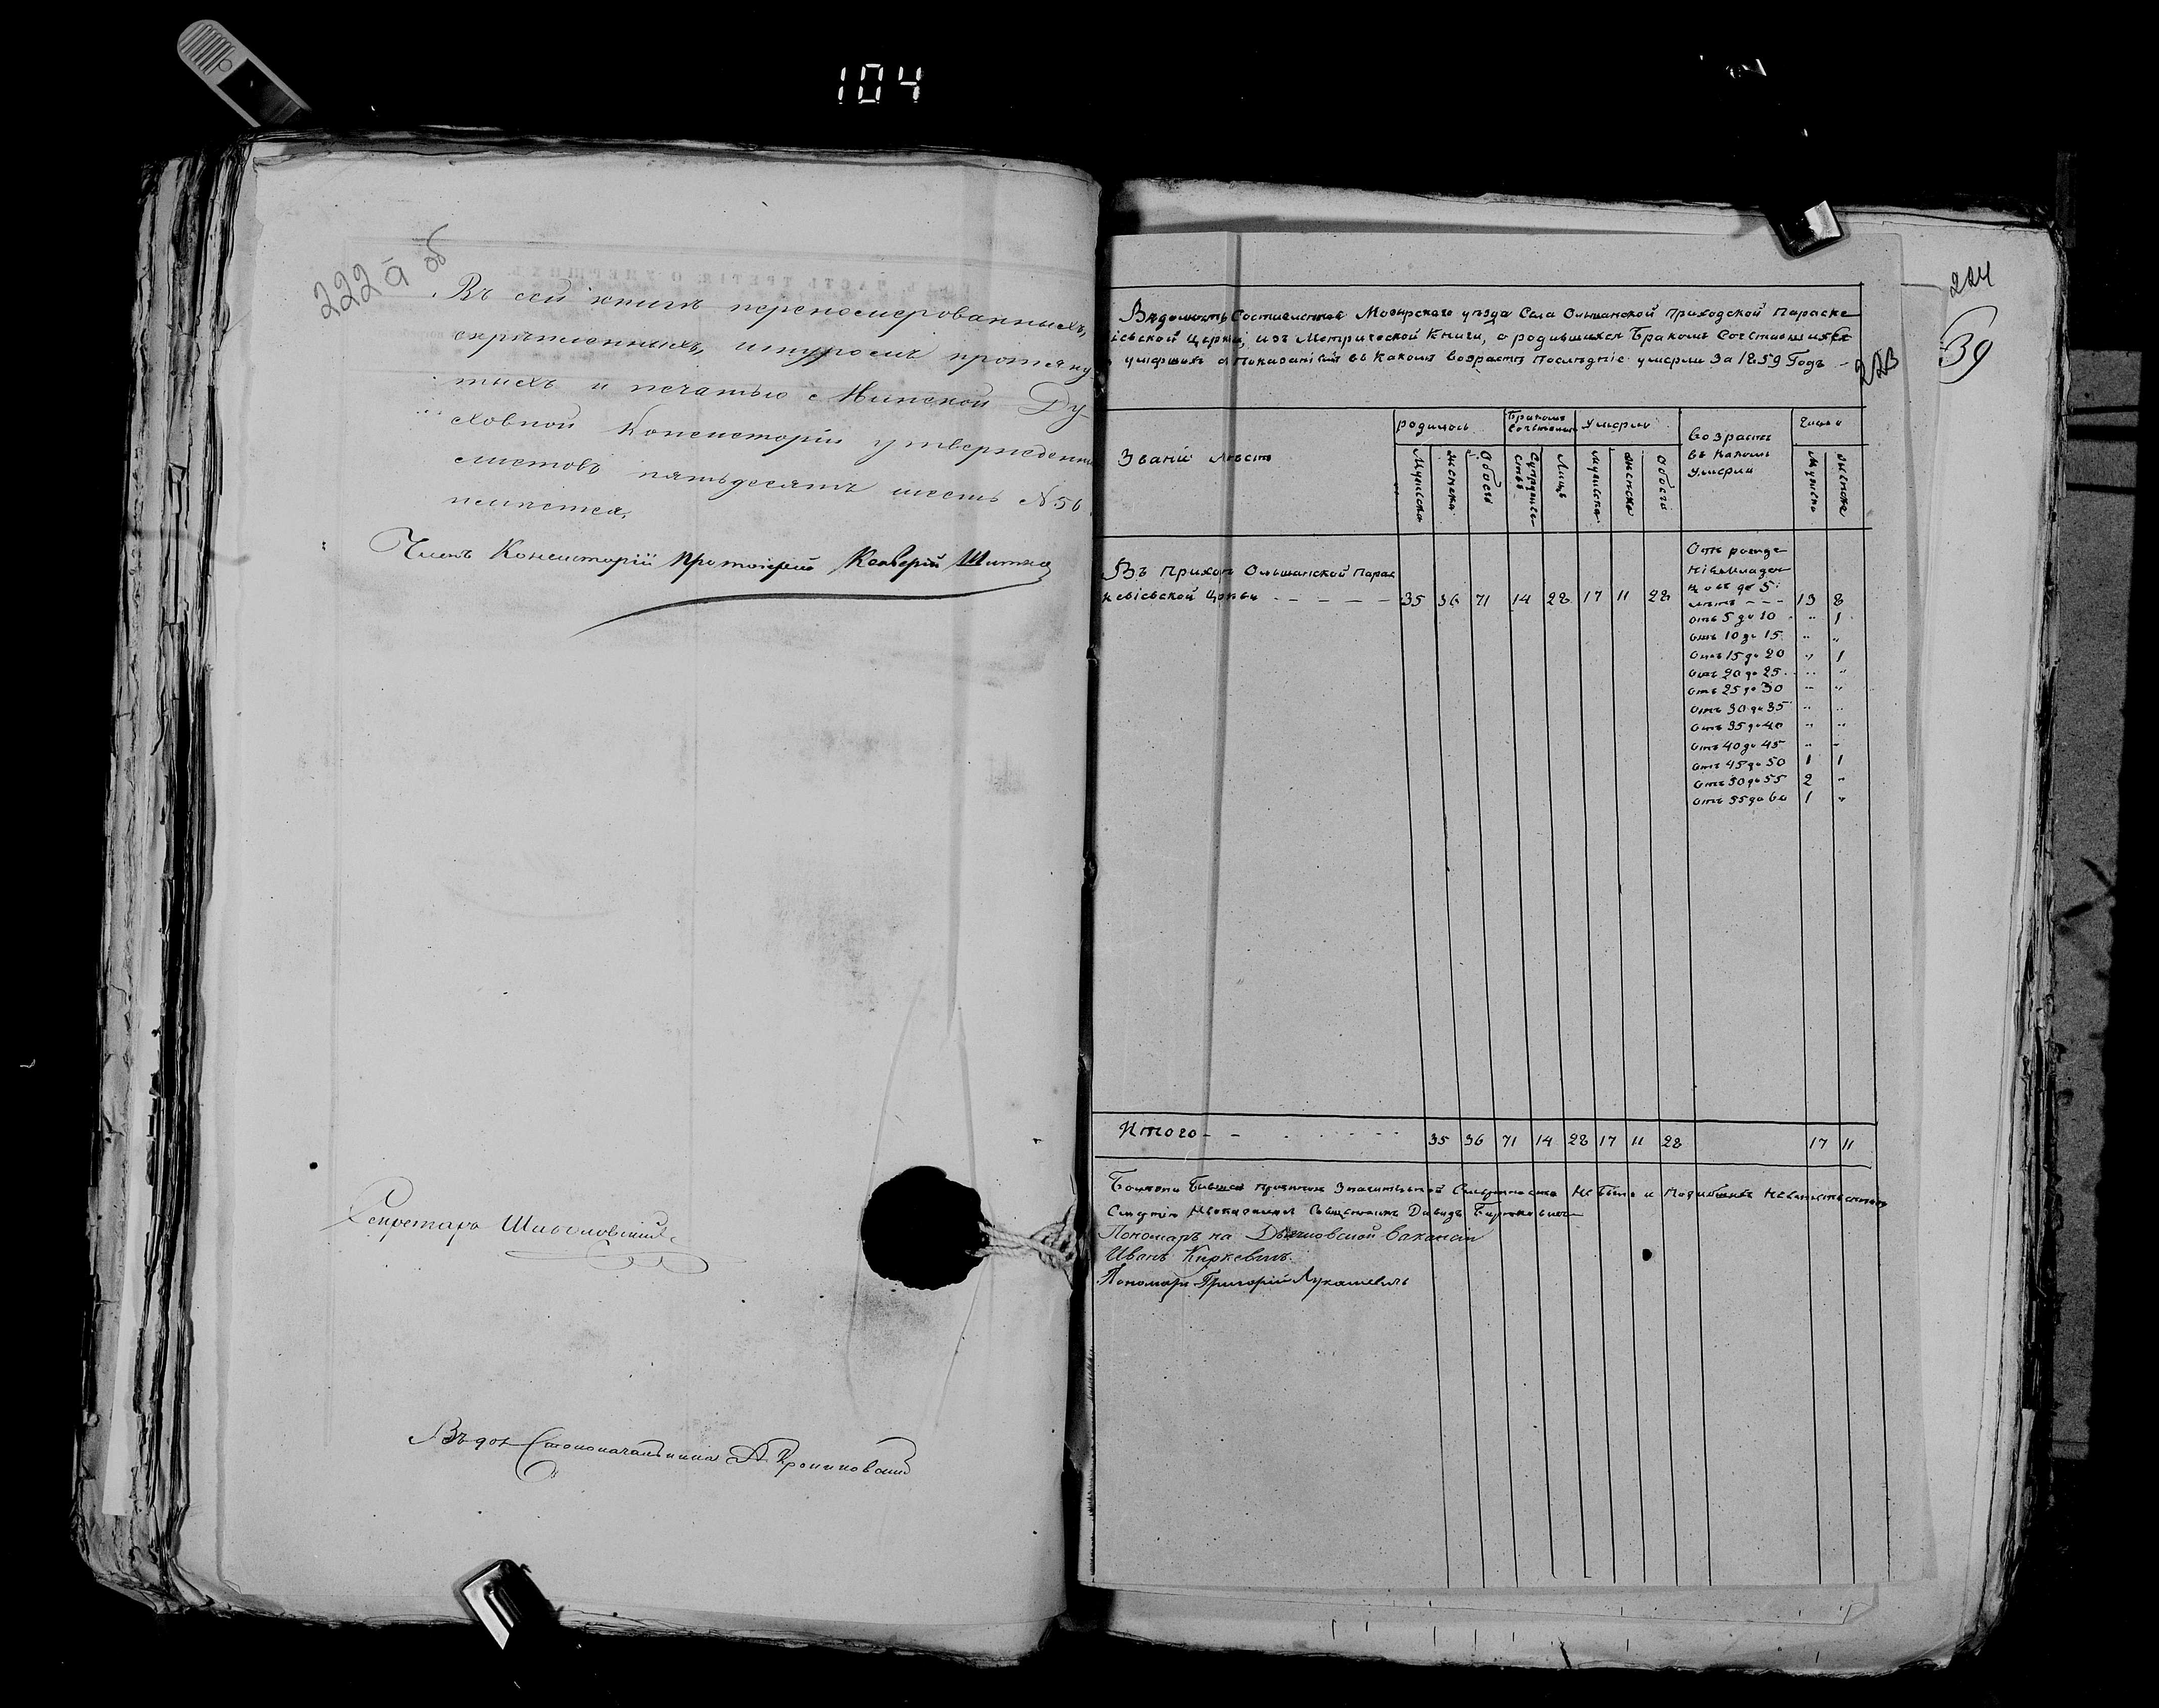 104
222 а об
Въ сей книгѣ перенумерованныхъ,
скрѣпленныхъ, шнуромъ протяну
тыхъ и печатью Минской Ду-
ховной Консисторіи утвержденныхъ
листовъ пятьдесятъ шесть N 56
имѣется.
Членъ Консисторіи Протоіерей
Секретарь
Въ дол. Столоначальника А.
224
39
223
Вѣдомость Составленная Мозырского уѣзда Села Ольшанской Приходской Параске
іевской Церкви, изъ Метрической Книги, о родившихся Бракомъ Сочетавшихся
умершихъ съ Показаніемъ въ Какомъ возрастѣ Послѣдніе умерли За 1859 Годъ -
Званіи мѣстъ
родилось
Бракомъ Сочетались
Умерло
Возрастъ въ Какомъ Умерли
Число
Мужеска
женска
Обоего
Супружествъ
Лицъ
мужеска
женска
Обоего
Мужеска
женска
Въ Приход Ольшанской Парас
кевіевской Церкви - - - - 35 36 71 14 28 17 11 28
Отъ рожде
нія Младен
цовъ до 5
лѣтъ - - - 13 8
отъ 5 до 10 " 1
отъ 10 до 15 " "
Отъ 15 до 20 " 1
отъ 20 до 25 " "
отъ 25 до 30 " "
Отъ 30 до 35 " "
Отъ 35 до 40 " "
Отъ 40 до 45 " "
отъ 45 до 50 1 1
отъ 50 до 55 2 "
отъ 55 до 60 1 "
Итого - - 35 36 71 14 28 17 11 28 17 11
Значительной Смертности Не было и
Священникъ Давидъ
Пономарь на вакансіи
Иванъ Киркевичъ.
Пономарь Григорій Лукашевичъ